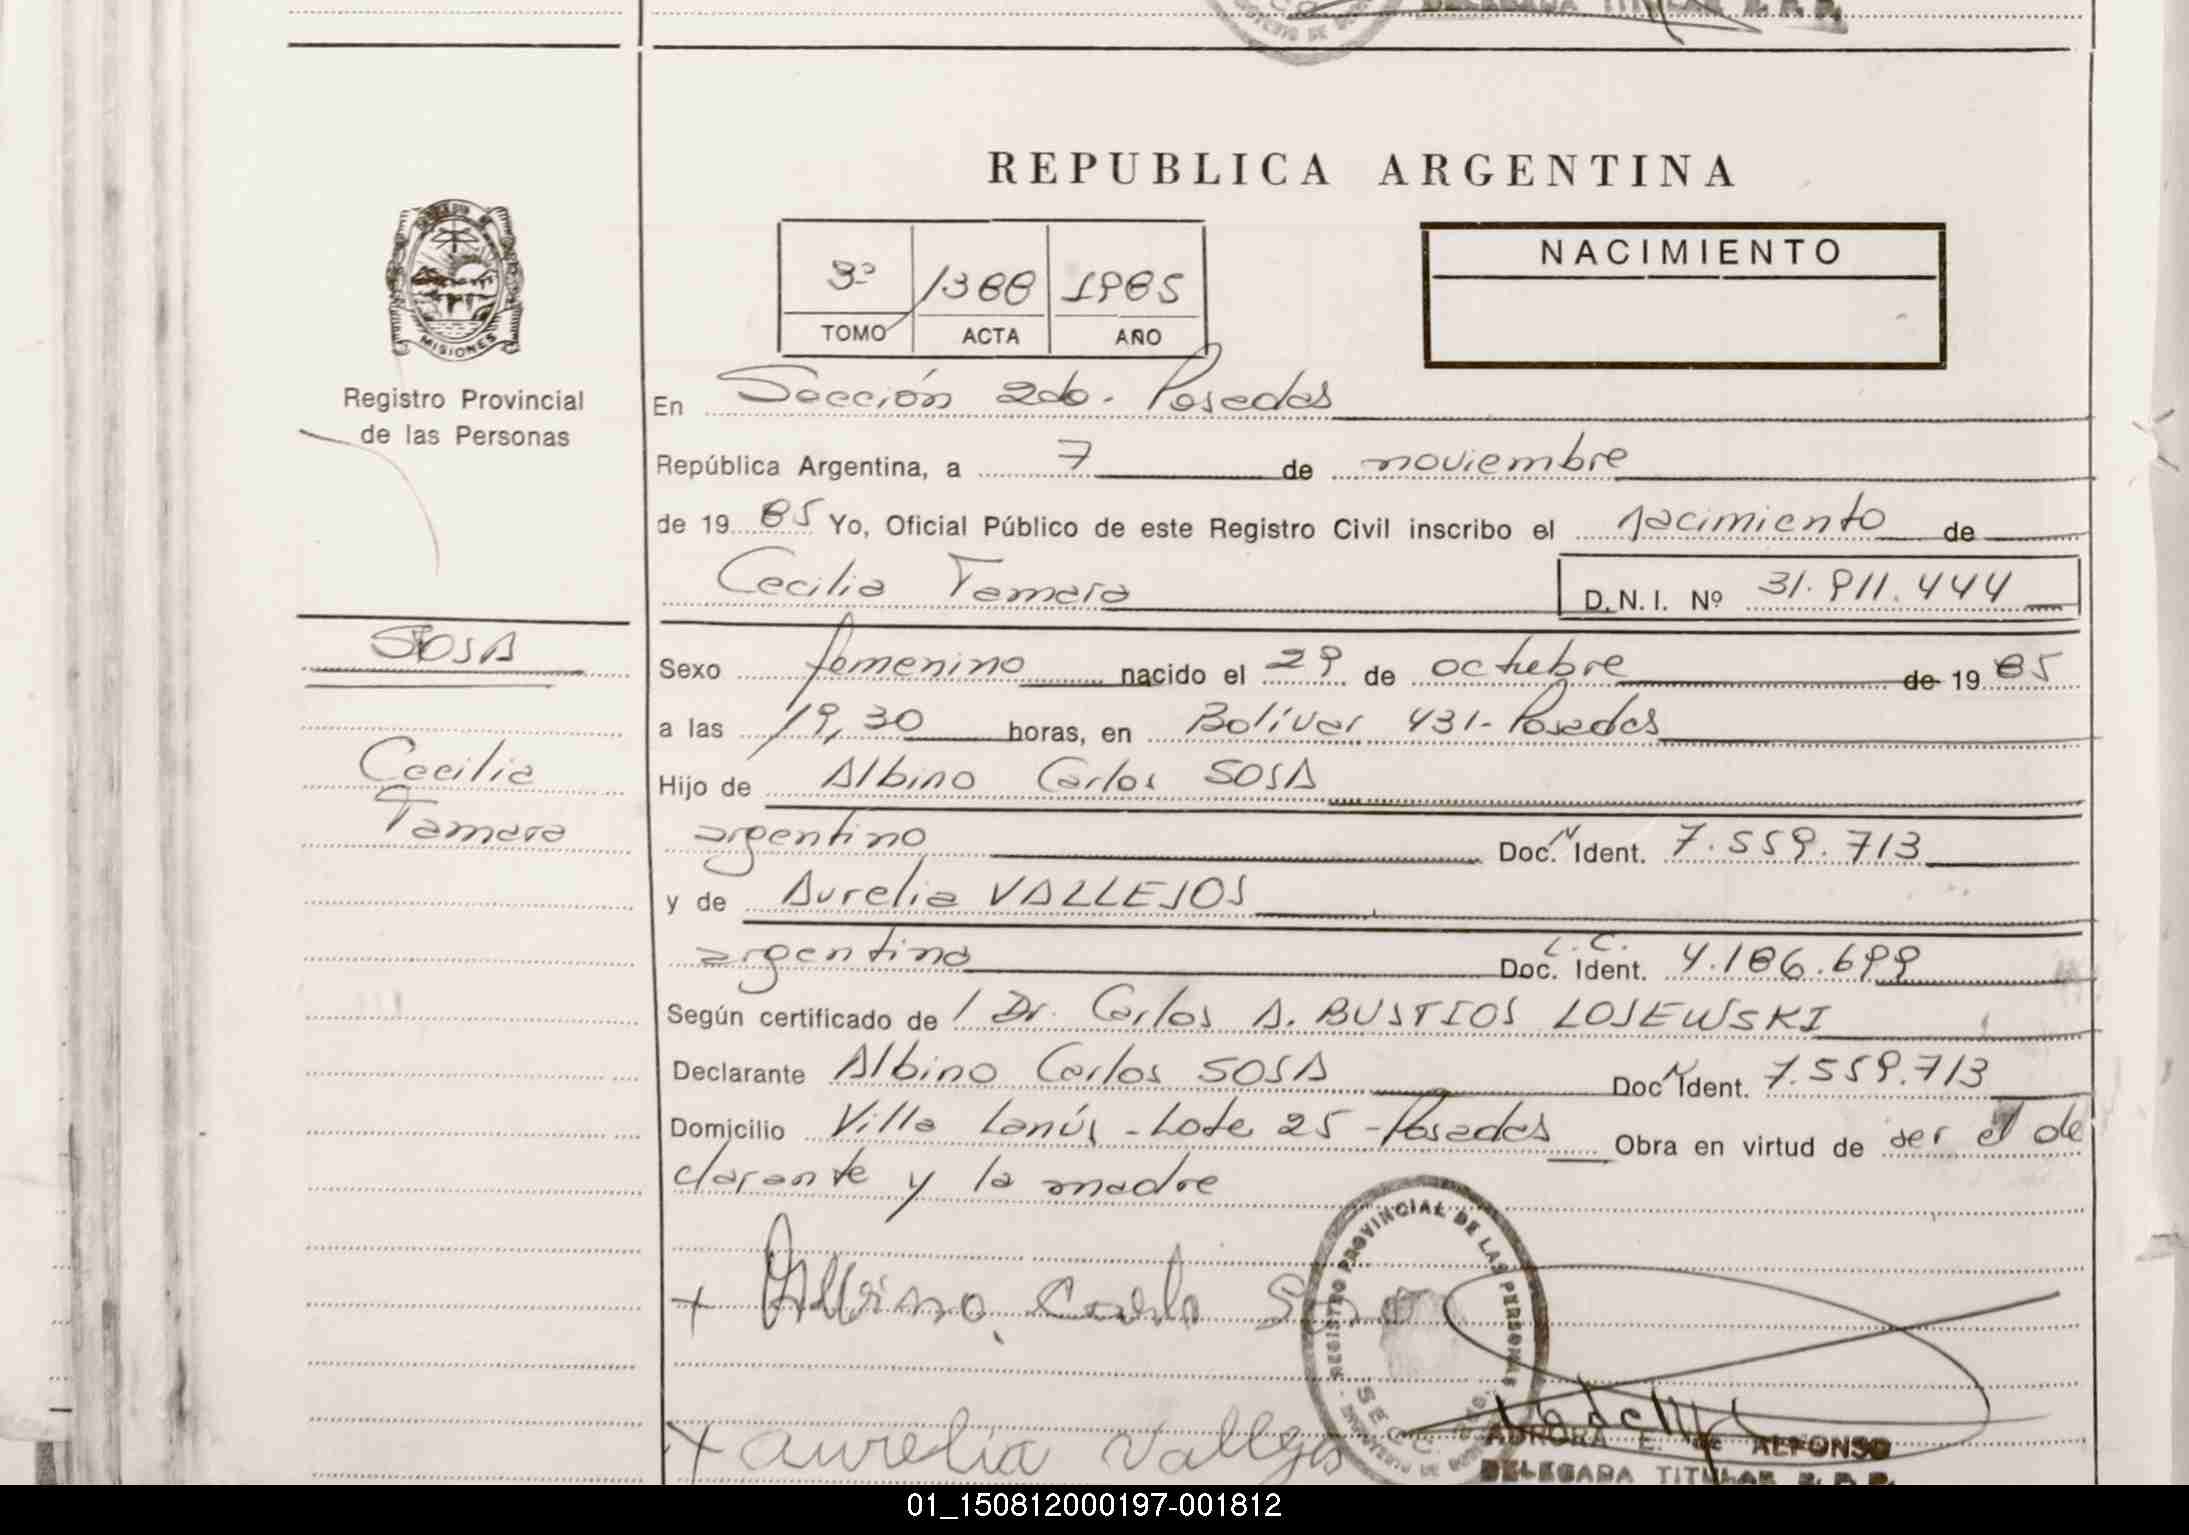 DELEGADA TITULAR R. P. P.
REPUBLICA ARGENTINA
NACIMIENTO
3º 1388 1985
TOMO ACTA AÑO
MISIONES
Registro Provincial
de las Personas
En Sección 2da. Posadas
República Argentina, a 7 de noviembre
de 19 85 Yo, Oficial Público de este Registro Civil inscribo el nacimiento de
Cecilia Tamara D.N.I. Nº 31.911.444
SOSA
Cecilia
Tamara
Sexo femenino nacido el 29 de octubre de 19 85
a las 19,30 horas, en Bolívar 431- Posadas
Hijo de Albino Carlos SOSA
argentino Doc. Ident. 7.559.713
y de Aurelia VALLEJOS
argentina L.C. Doc. Ident. 4.186.699
Según certificado de / Dr. Carlos A. BUSTIOS LOSEWSKI
Declarante Albino Carlos SOSA Doc Ident. 7.559.713
Domicilio Villa Lanús - Lote 25 - Posadas Obra en virtud de ser el de
clarante y la madre
+ Albino Carlo Sosa
REGISTRO PROVINCIAL DE LAS PERSONAS
SECC.
+ aurelia Vallejos
AURORA E. de ALFONSO
DELEGADA TITULAR R. P. P.
01_150812000197-001812